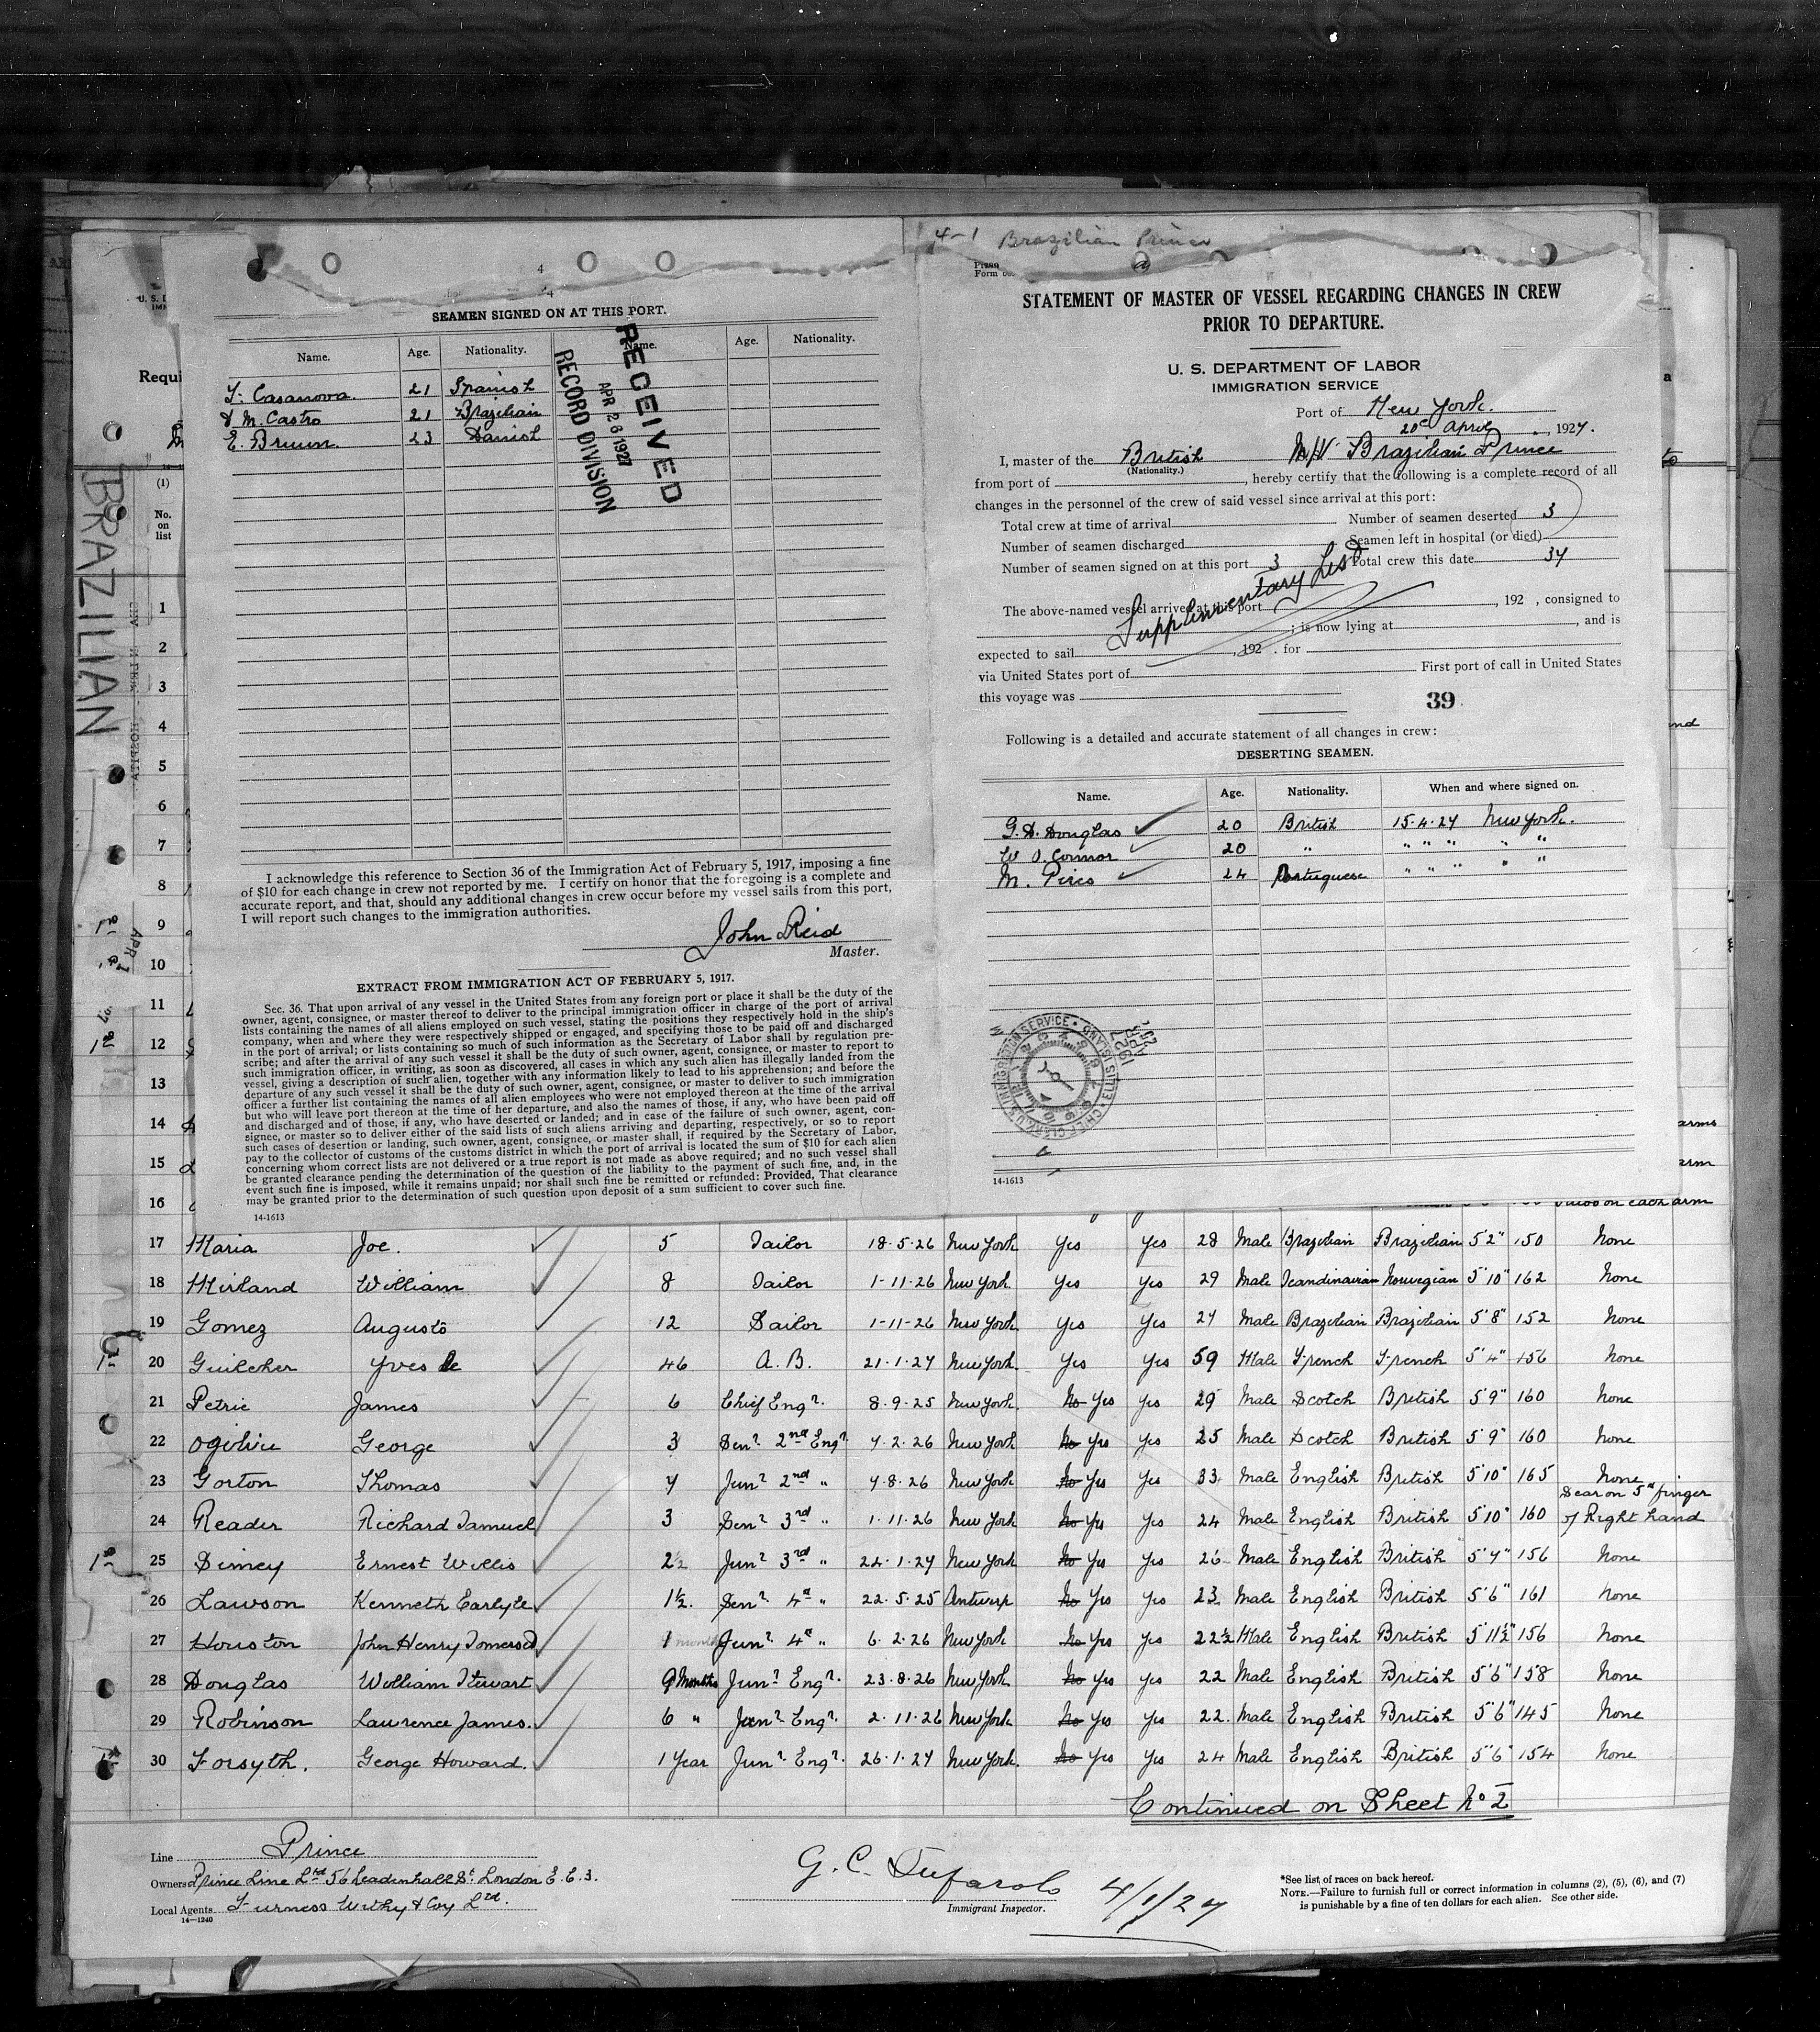 4-1 Brazilian Prince
4
4
SEAMEN SIGNED ON AT THIS PORT.
Name. Age. Nationality. Name. Age. Nationality.
F. Casanova. 21 Spanish
M. Castro 21 Brazilian
E. Bruun. 23 Danish
RECEIVED
APR 26 1927
RECORD DIVISION
I acknowledge this reference to Section 36 of the Immigration Act of February 5, 1917, imposing a fine
of $10 for each change in crew not reported by me. I certify on honor that the foregoing is a complete and
accurate report, and that, should any additional changes in crew occur before my vessel sails from this port,
I will report such changes to the immigration authorities.
John Reid
Master.
EXTRACT FROM IMMIGRATION ACT OF FEBRUARY 5, 1917.
Sec. 36. That upon arrival of any vessel in the United States from any foreign port or place it shall be the duty of the
owner, agent, consignee, or master thereof to deliver to the principal immigration officer in charge of the port of arrival
lists containing the names of all aliens employed on such vessel, stating the positions they respectively hold in the ship's
company, when and where they were respectively shipped or engaged, and specifying those to be paid off and discharged
in the port of arrival; or lists containing so much of such information as the Secretary of Labor shall by regulation pre-
scribe; and after the arrival of any such vessel it shall be the duty of such owner, agent, consignee, or master to report to
such immigration officer, in writing, as soon as discovered, all cases in which any such alien has illegally landed from the
vessel, giving a description of such alien, together with any information likely to lead to his apprehension; and before the
departure of any such vessel it shall be the duty of such owner, agent, consignee, or master to deliver to such immigration
officer a further list containing the names of all alien employees who were not employed thereon at the time of the arrival
but who will leave port thereon at the time of her departure, and also the names of those, if any, who have been paid off
and discharged and of those, if any, who have deserted or landed; and in case of the failure of such owner, agent, con-
signee, or master so to deliver either of the said lists of such aliens arriving and departing, respectively, or so to report
such cases of desertion or landing, such owner, agent, consignee, or master shall, if required by the Secretary of Labor,
pay to the collector of customs of the customs district in which the port of arrival is located the sum of $10 for each alien
concerning whom correct lists are not delivered or a true report is not made as above required; and no such vessel shall
be granted clearance pending the determination of the question of the liability to the payment of such fine, and, in the
event such fine is imposed, while it remains unpaid; nor shall such fine be remitted or refunded: Provided, That clearance
may be granted prior to the determination of such question upon deposit of a sum sufficient to cover such fine.
14-1613
STATEMENT OF MASTER OF VESSEL REGARDING CHANGES IN CREW
PRIOR TO DEPARTURE.
U. S. DEPARTMENT OF LABOR
IMMIGRATION SERVICE
Port of New York.
20th April, 1927.
I, master of the British M/V Brazilian Prince
(Nationality.)
from port of , hereby certify that the following is a complete record of all
changes in the personnel of the crew of said vessel since arrival at this port:
Total crew at time of arrival Number of seamen deserted 3
Number of seamen discharged Seamen left in hospital (or died)
Number of seamen signed on at this port 3 Total crew this date 37
Supplementary List
The above-named vessel arrived at this port , 192 , consigned to
; is now lying at , and is
expected to sail , 192 . for
via United States port of First port of call in United States
this voyage was
39
Following is a detailed and accurate statement of all changes in crew:
DESERTING SEAMEN.
Name. Age. Nationality. When and where signed on.
G. D. Douglas 20 British 15.4.27 New York.
W O. Connor 20 " " " " " "
M. Pires 24 Portuguese " " " " "
14-1613
BRAZILIAN
Requi
(1)
No.
on
list
1
2
3
4
5
6
7
8
9
10
11
12
13
14
15
16 each arm
17 Maria Joe. 5 Sailor 18.5.26 New York Yes Yes 28 Male Brazilian Brazilian 5'2" 150 None
18 Mirland William 8 Sailor 1-11-26 New York Yes Yes 29 Male Scandinavian Norwegian 5'10" 162 None
19 Gomez Augusto 12 Sailor 1-11-26 New York Yes Yes 27 Male Brazilian Brazilian 5'8" 152 None
20 Guilcher Yves le 46 A. B. 21.1.27 New York Yes Yes 59 Male French French 5'4" 156 None
21 Petrie James 6 Chief Engr. 8.9.25 New York. No Yes Yes 29 Male Scotch British 5'9" 160 None
22 Ogilvie George 3 Senr 2nd Engr 7.2.26 New York No Yes Yes 25 Male Scotch British 5'9" 160 None
23 Gorton Thomas 7 Junr 2nd " 7.8.26 New York No Yes Yes 33 Male English British 5'10" 165 None
Scar on 5th finger
24 Reader Richard Samuel 3 Senr 3rd " 1.11.26 New York No Yes Yes 24 Male English British 5'10" 160 of Right hand
25 Simey Ernest Willis 2½ Junr 3rd " 22.1.27 New York No Yes Yes 26 Male English British 5'7" 156 None
26 Lawson Kenneth Carlyle 1½. Senr 4th " 22.5.25 Antwerp No Yes Yes 23 Male English British 5'6" 161 None
27 Houston John Henry Somerset 1 month Junr 4th " 6.2.26 New York No Yes Yes 22½ Male English British 5'11½" 156 None
28 Douglas William Stewart 9 Months Junr Engr. 23.8.26 New York No Yes Yes 22 Male English British 5'6" 158 None
29 Robinson Lawrence James. 6 " Junr Engr. 2.11.26 New York No Yes Yes 22. Male English British 5'6" 145 None
30 Forsyth. George Howard. 1 Year Junr Engr. 26.1.27 New York. No Yes Yes 24 Male English British 5'6" 154 None
Continued on Sheet No 2
Line Prince
Owners Prince Line Ltd 56 Leadenhall St. London E.C.3.
Local Agents Furness Withy & Coy Ltd.
14-1240
G. C. Tufarolo
Immigrant Inspector.
4/1/27
*See list of races on back hereof.
NOTE.—Failure to furnish full or correct information in columns (2), (5), (6), and (7)
is punishable by a fine of ten dollars for each alien. See other side.